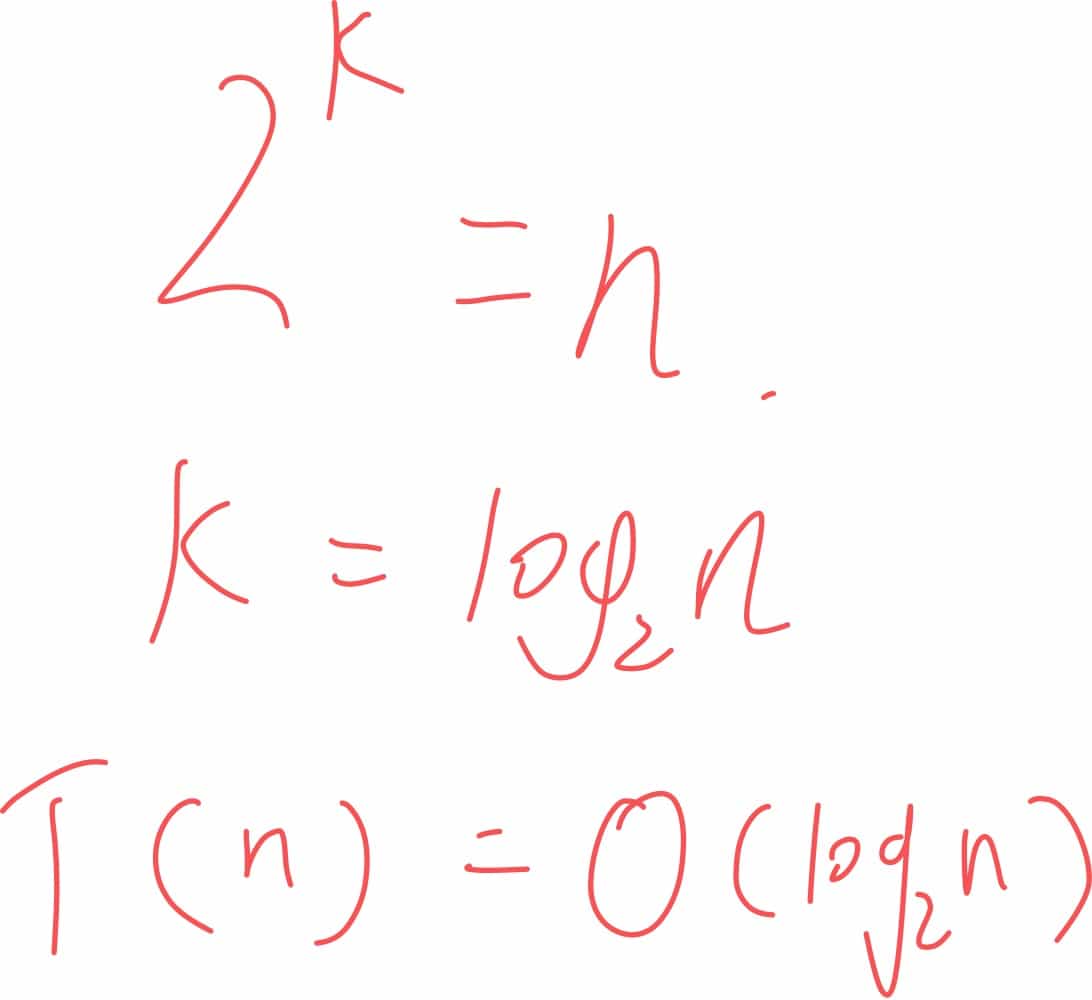 2^k = n.
k = log₂n
T(n) = O(log₂n)